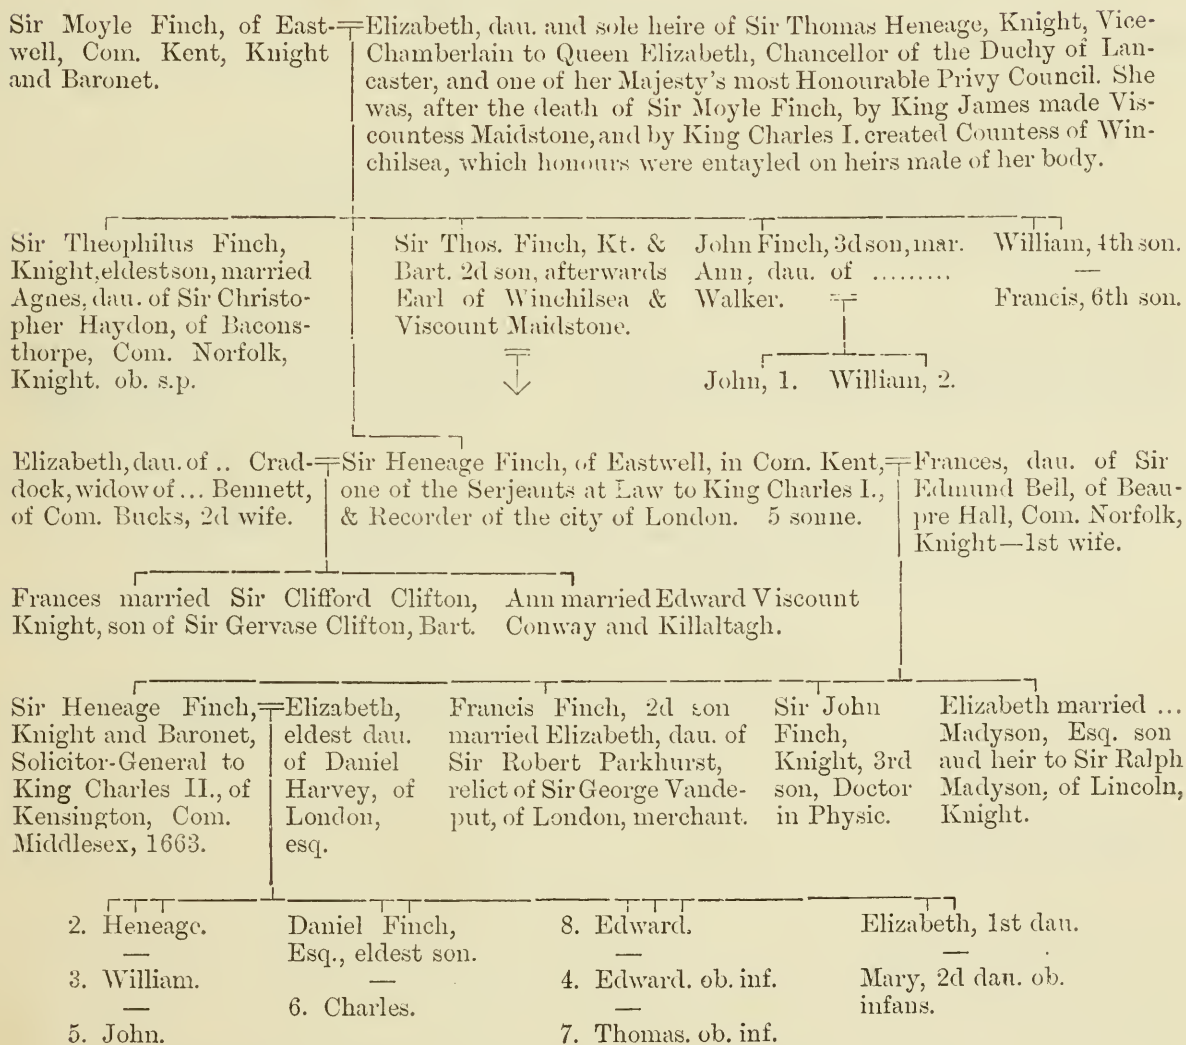 Sir Moyle Finch, of East-
well, Com. Kent, Knight
and Baronet.
Elizabeth, dau. and sole heire of Sir Thomas Heneage, Knight, Vice-
Chamberlain to Queen Elizabeth, Chancellor of the Duchy of Lan-
caster, and one of her Majesty's most Honourable Privy Council. She
was, after the death of Sir Moyle Finch, by King James made Vis-
countess Maidstone, and by King Charles I. created Countess of Win-
chilsea, which honours were entayled on heirs male of her body.
Sir Theophilus Finch,
Knight, eldest son, married
Agnes, dau. of Sir Christo-
pher Haydon, of Bacons-
thorpe, Com. Norfolk,
Knight. ob. s.p.
Sir Thos. Finch, Kt. &
Bart. 2d son, afterwards
Earl of Winchilsea &
Viscount Maidstone.
John Finch, 3d son, mar.
Ann, dau. of .........
Walker.
John, 1. William, 2.
William, 4th son.
—
Francis, 6th son.
Elizabeth, dau. of .. Crad-
dock, widow of ... Bennett,
of Com. Bucks, 2d wife.
Sir Heneage Finch, of Eastwell, in Com. Kent,
one of the Serjeants at Law to King Charles I.,
& Recorder of the city of London. 5 sonne.
Frances, dau. of Sir
Edmund Bell, of Beau-
pre Hall, Com. Norfolk,
Knight—1st wife.
Frances married Sir Clifford Clifton,
Knight, son of Sir Gervase Clifton, Bart.
Ann married Edward Viscount
Conway and Killaltagh.
Sir Heneage Finch,
Knight and Baronet,
Solicitor-General to
King Charles II., of
Kensington, Com.
Middlesex, 1663.
Elizabeth,
eldest dau.
of Daniel
Harvey, of
London,
esq.
Francis Finch, 2d son
married Elizabeth, dau. of
Sir Robert Parkhurst,
relict of Sir George Vande-
put, of London, merchant.
Sir John
Finch,
Knight, 3rd
son, Doctor
in Physic.
Elizabeth married ...
Madyson, Esq. son
and heir to Sir Ralph
Madyson, of Lincoln,
Knight.
2. Heneage.
—
3. William.
—
5. John.
Daniel Finch,
Esq., eldest son.
—
6. Charles.
8. Edward.
—
4. Edward. ob. inf.
—
7. Thomas. ob. inf.
Elizabeth, 1st dau.
—
Mary, 2d dau. ob.
infans.